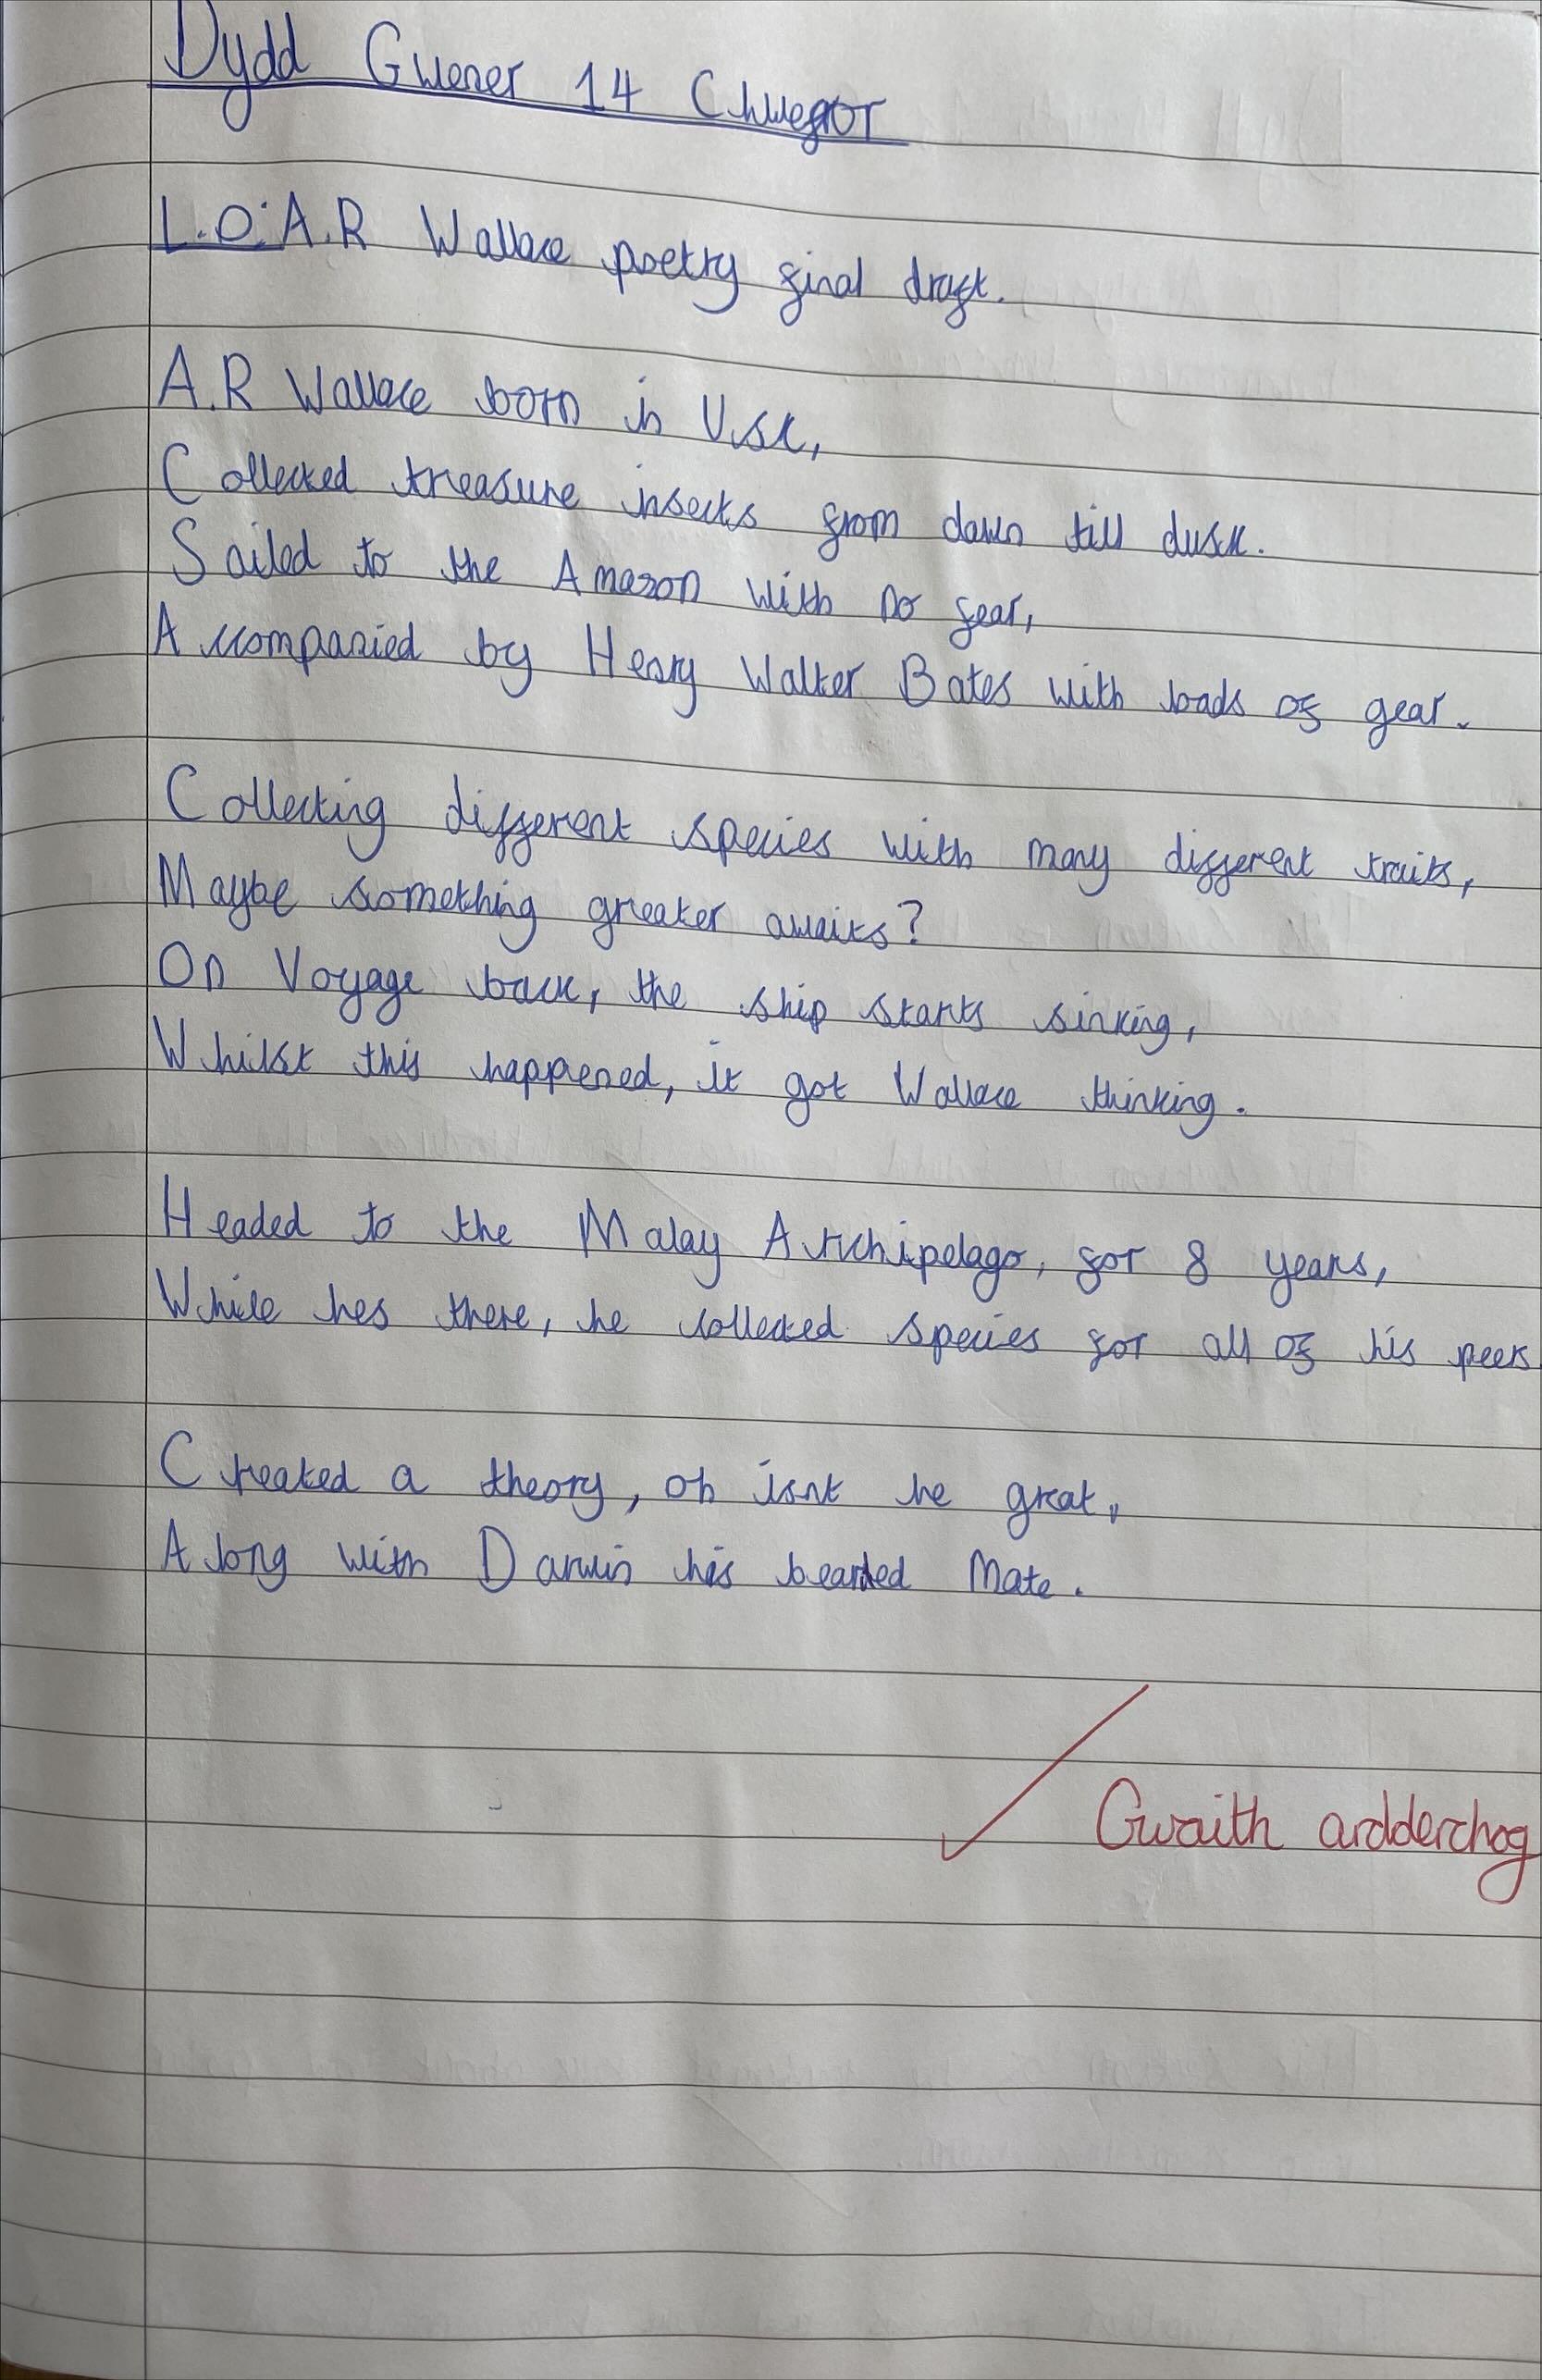 Dydd Gwener 14 Chwefror
L.O: A.R Wallace poetry final draft.
A.R Wallace born in Usk,
Collected treasure insects from dawn till dusk.
Sailed to the Amazon with no fear,
Accompanied by Henry Walter Bates with loads of gear.
Collecting different species with many different traits,
Maybe something greater awaits?
On Voyage back, the ship starts sinking,
Whilst this happened, it got Wallace thinking.
Headed to the Malay Archipelago, for 8 years,
While hes there, he collected species for all of his peers
Created a theory, oh isnt he great,
Along with Darwin his bearded Mate.
Gwaith ardderchog